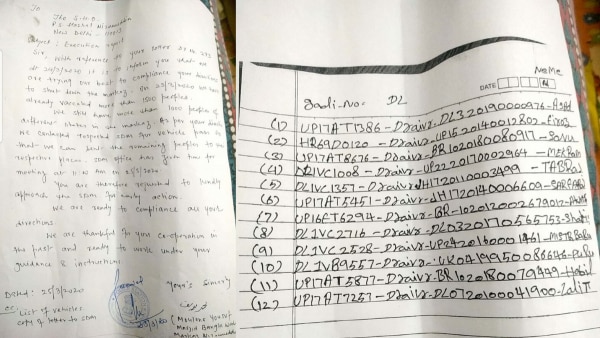 To
The S.H.O.
P.S. Hazrat Nizamuddin
New Delhi - 110013
Subject:
Sir, With reference to your letter
dt 24/3/2020 it is to inform you that we
are trying our best to compliance your directions
to shut down the Markaz. On 23/3/2020 we have
already vacated more than 1500 peoples.
We still have more than 1000 people of
different states in the markaz. As per your direct
We contacted respected SDM for vehicle passes so
that we can sent the remaining peoples to their
respective places. SDM office has given time for
meeting at 11:00 Am on 25/3/2020
You are therefore requested to kindly
approach the SDM for early action.
We are ready to compliance all your
directions.
We are thankful for you co-operation in
the past and ready to work under your
guidance & instructions
Dated: 25/3/2020
Your's Sincerly
List of vehicles
copy of letter to SDM
Masjid Bangle Wali
Name
DATE
Gadi-No: DL
(1) UP17AT1386-Draivr-DL320190000976-
(2) HR69D0120-Draivr-UP1520140012802-Firoz
(3) UP17AT8676-Draivr-BR1020180080917-Sonu
(4) DL1VC1008-Draivr-UP2220170002964-
(5) DL1VC1357-Draivr-JH1720110003499-TABRAJ
(6) UP17AT5451-Draivr-JH1720140006609-
(7) UP16FT6294-Draivr-BR-1020120026790
(8) DL1VC2716-Draivr-DL0320170565753-
(9) DL1VC2528-Draivr-UP2420160001461-
(10) DL1VB9557-Draivr-UK0419950086646-
(11) UP17AT5877-Draivr-BR1020180079449-
(12) UP17AT7257-Draivr-DL0720100041900-Lalit